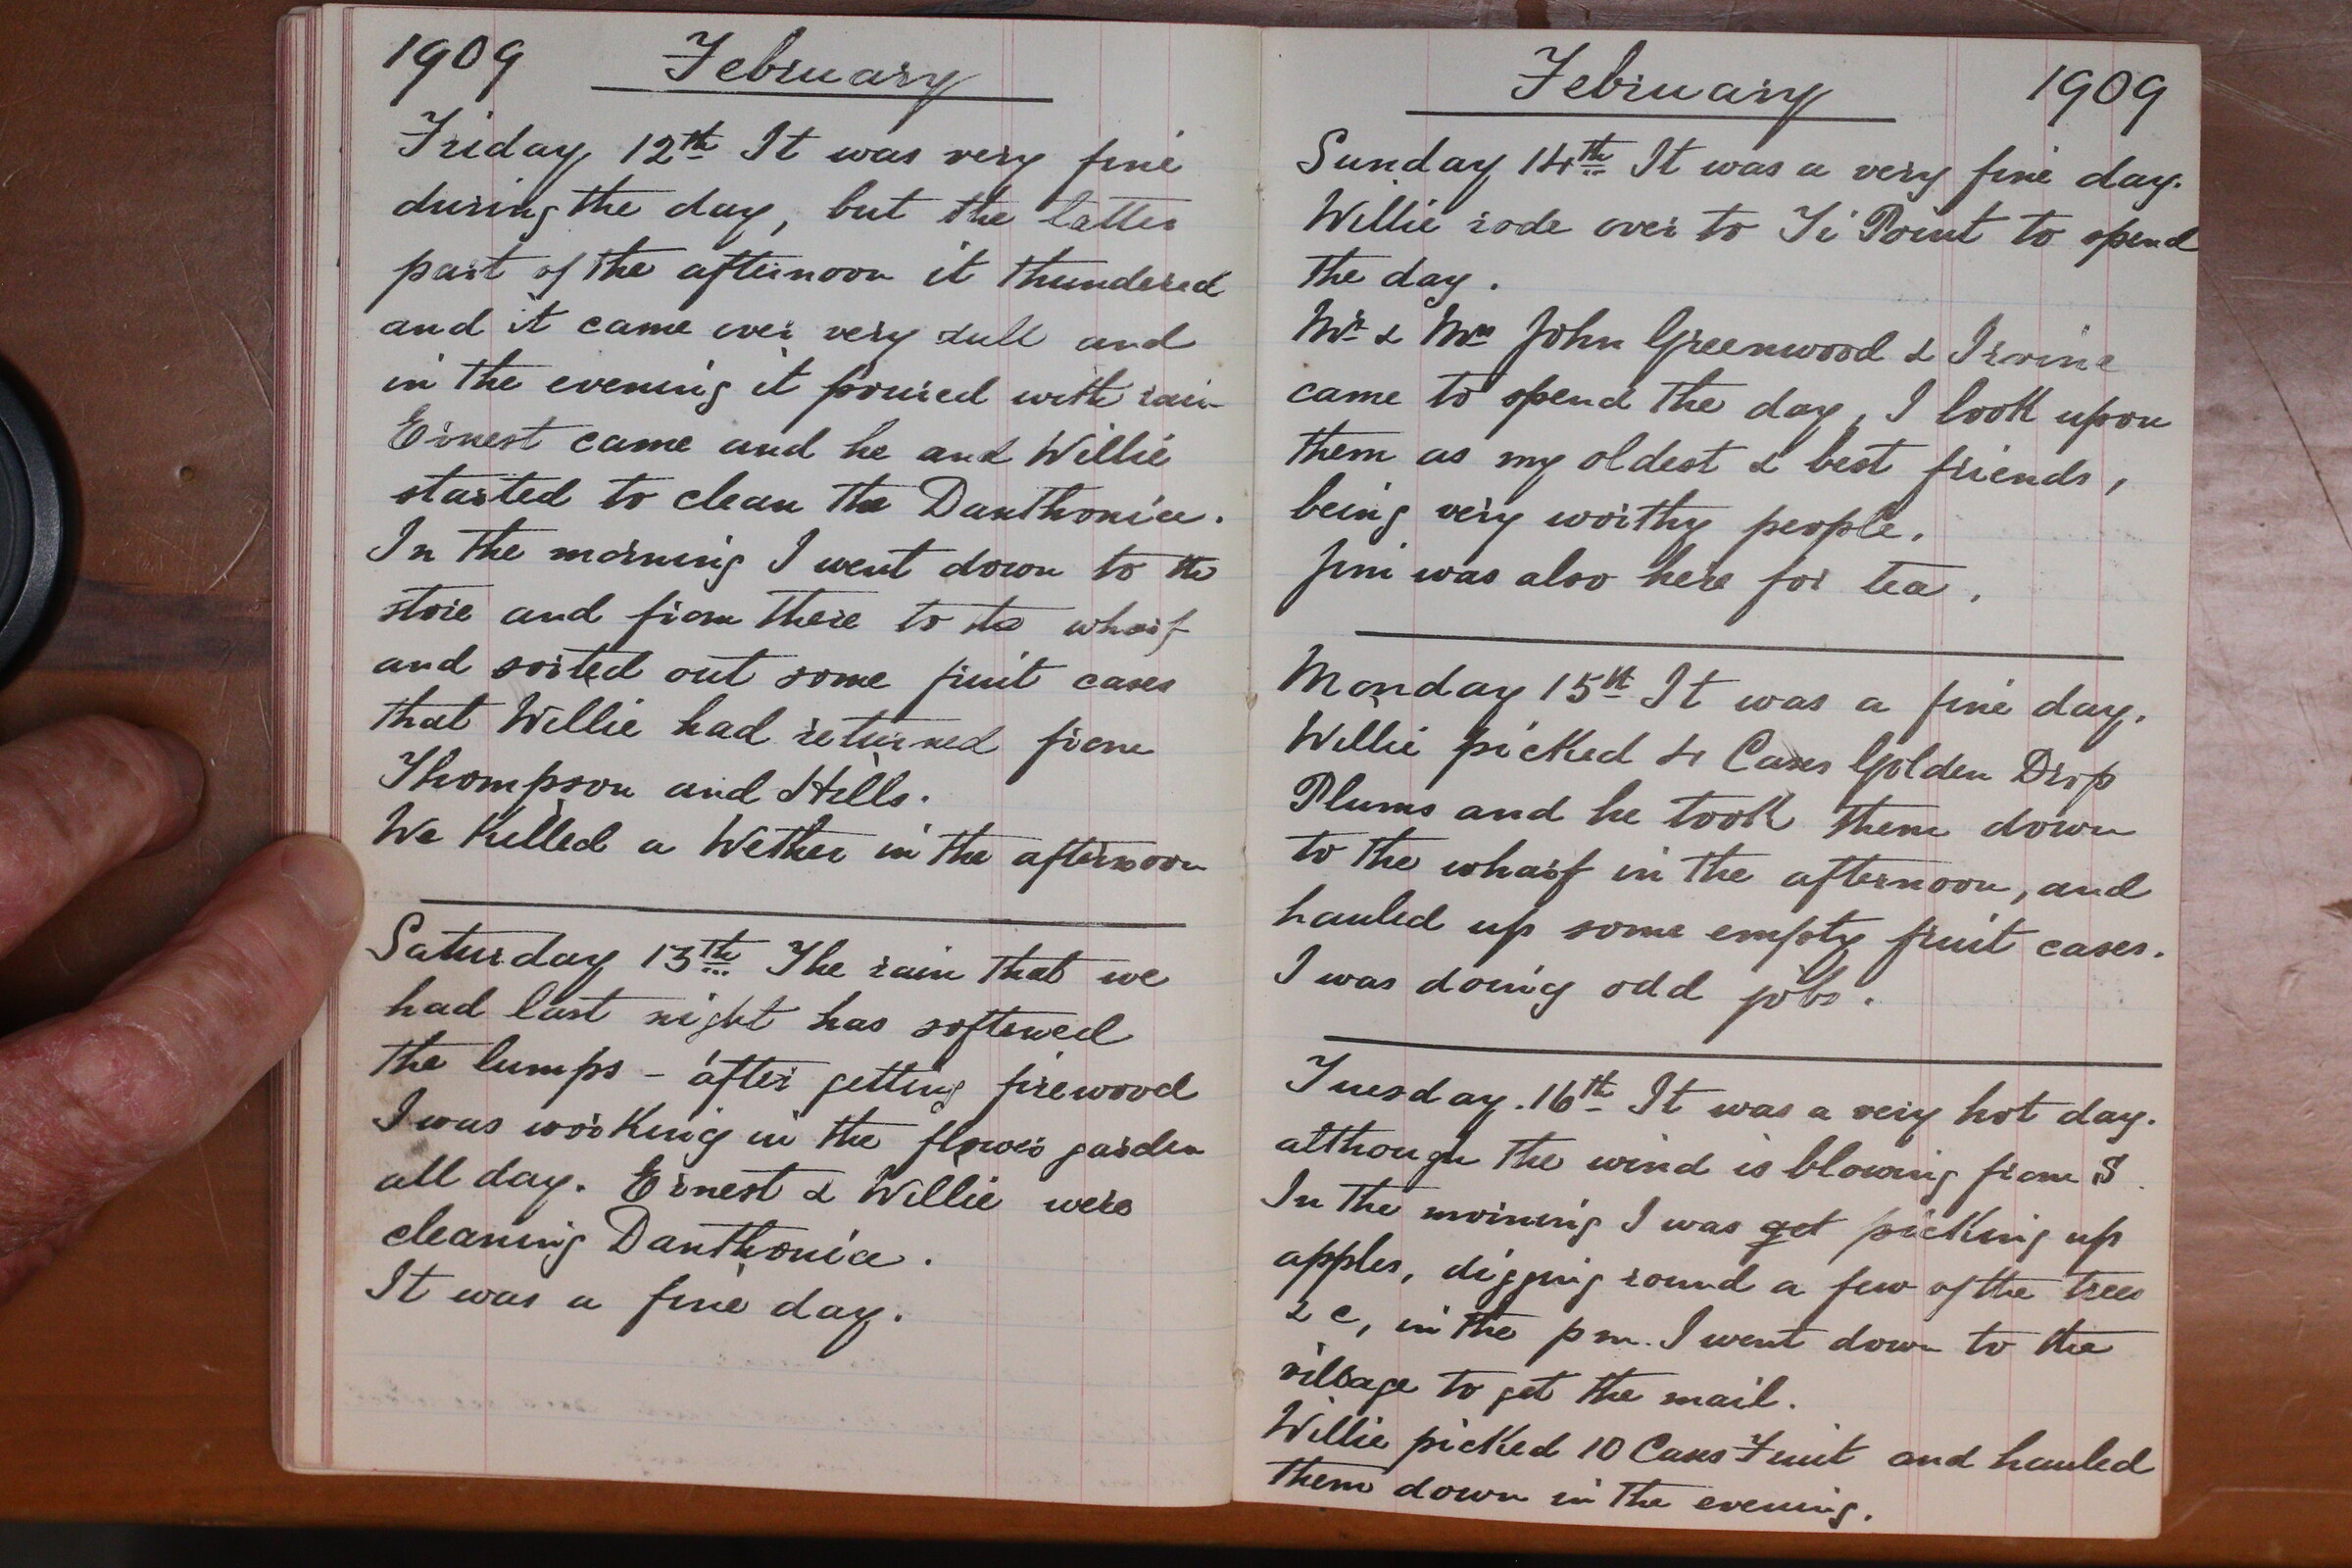 1909 February
Friday 12th It was very fine
during the day, but the latter
part of the afternoon it thundered
and it came over very dull and
in the evening it poured with rain
Ernest came and he and Willie
started to clean the Danthonia.
In the morning I went down to the
store and from there to the wharf
and sorted out some fruit cases
that Willie had returned from
Thompson and Hills.
We Killed a Wether in the afternoon
Saturday 13th The rain that we
had last night has softened
the lumps - after getting firewood
I was working in the flower garden
all day. Ernest & Willie were
cleaning Danthonia.
It was a fine day.
February 1909
Sunday 14th It was a very fine day.
Willie rode over to Ti Point to spend
the day.
Mr & Mrs John Greenwood & Irvine
came to spend the day, I look upon
them as my oldest & best friends,
being very worthy people.
Jim was also here for tea.
Monday 15th It was a fine day.
Willie picked 4 Cases Golden Drop
Plums and he took them down
to the wharf in the afternoon, and
hauled up some empty fruit cases.
I was doing odd jobs.
Tuesday. 16th It was a very hot day.
although the wind is blowing from S.
In the morning I was get picking up
apples, digging round a few of the trees
& c, in the pm. I went down to the
village to get the mail.
Willie picked 10 Cases Fruit and hauled
them down in the evening.